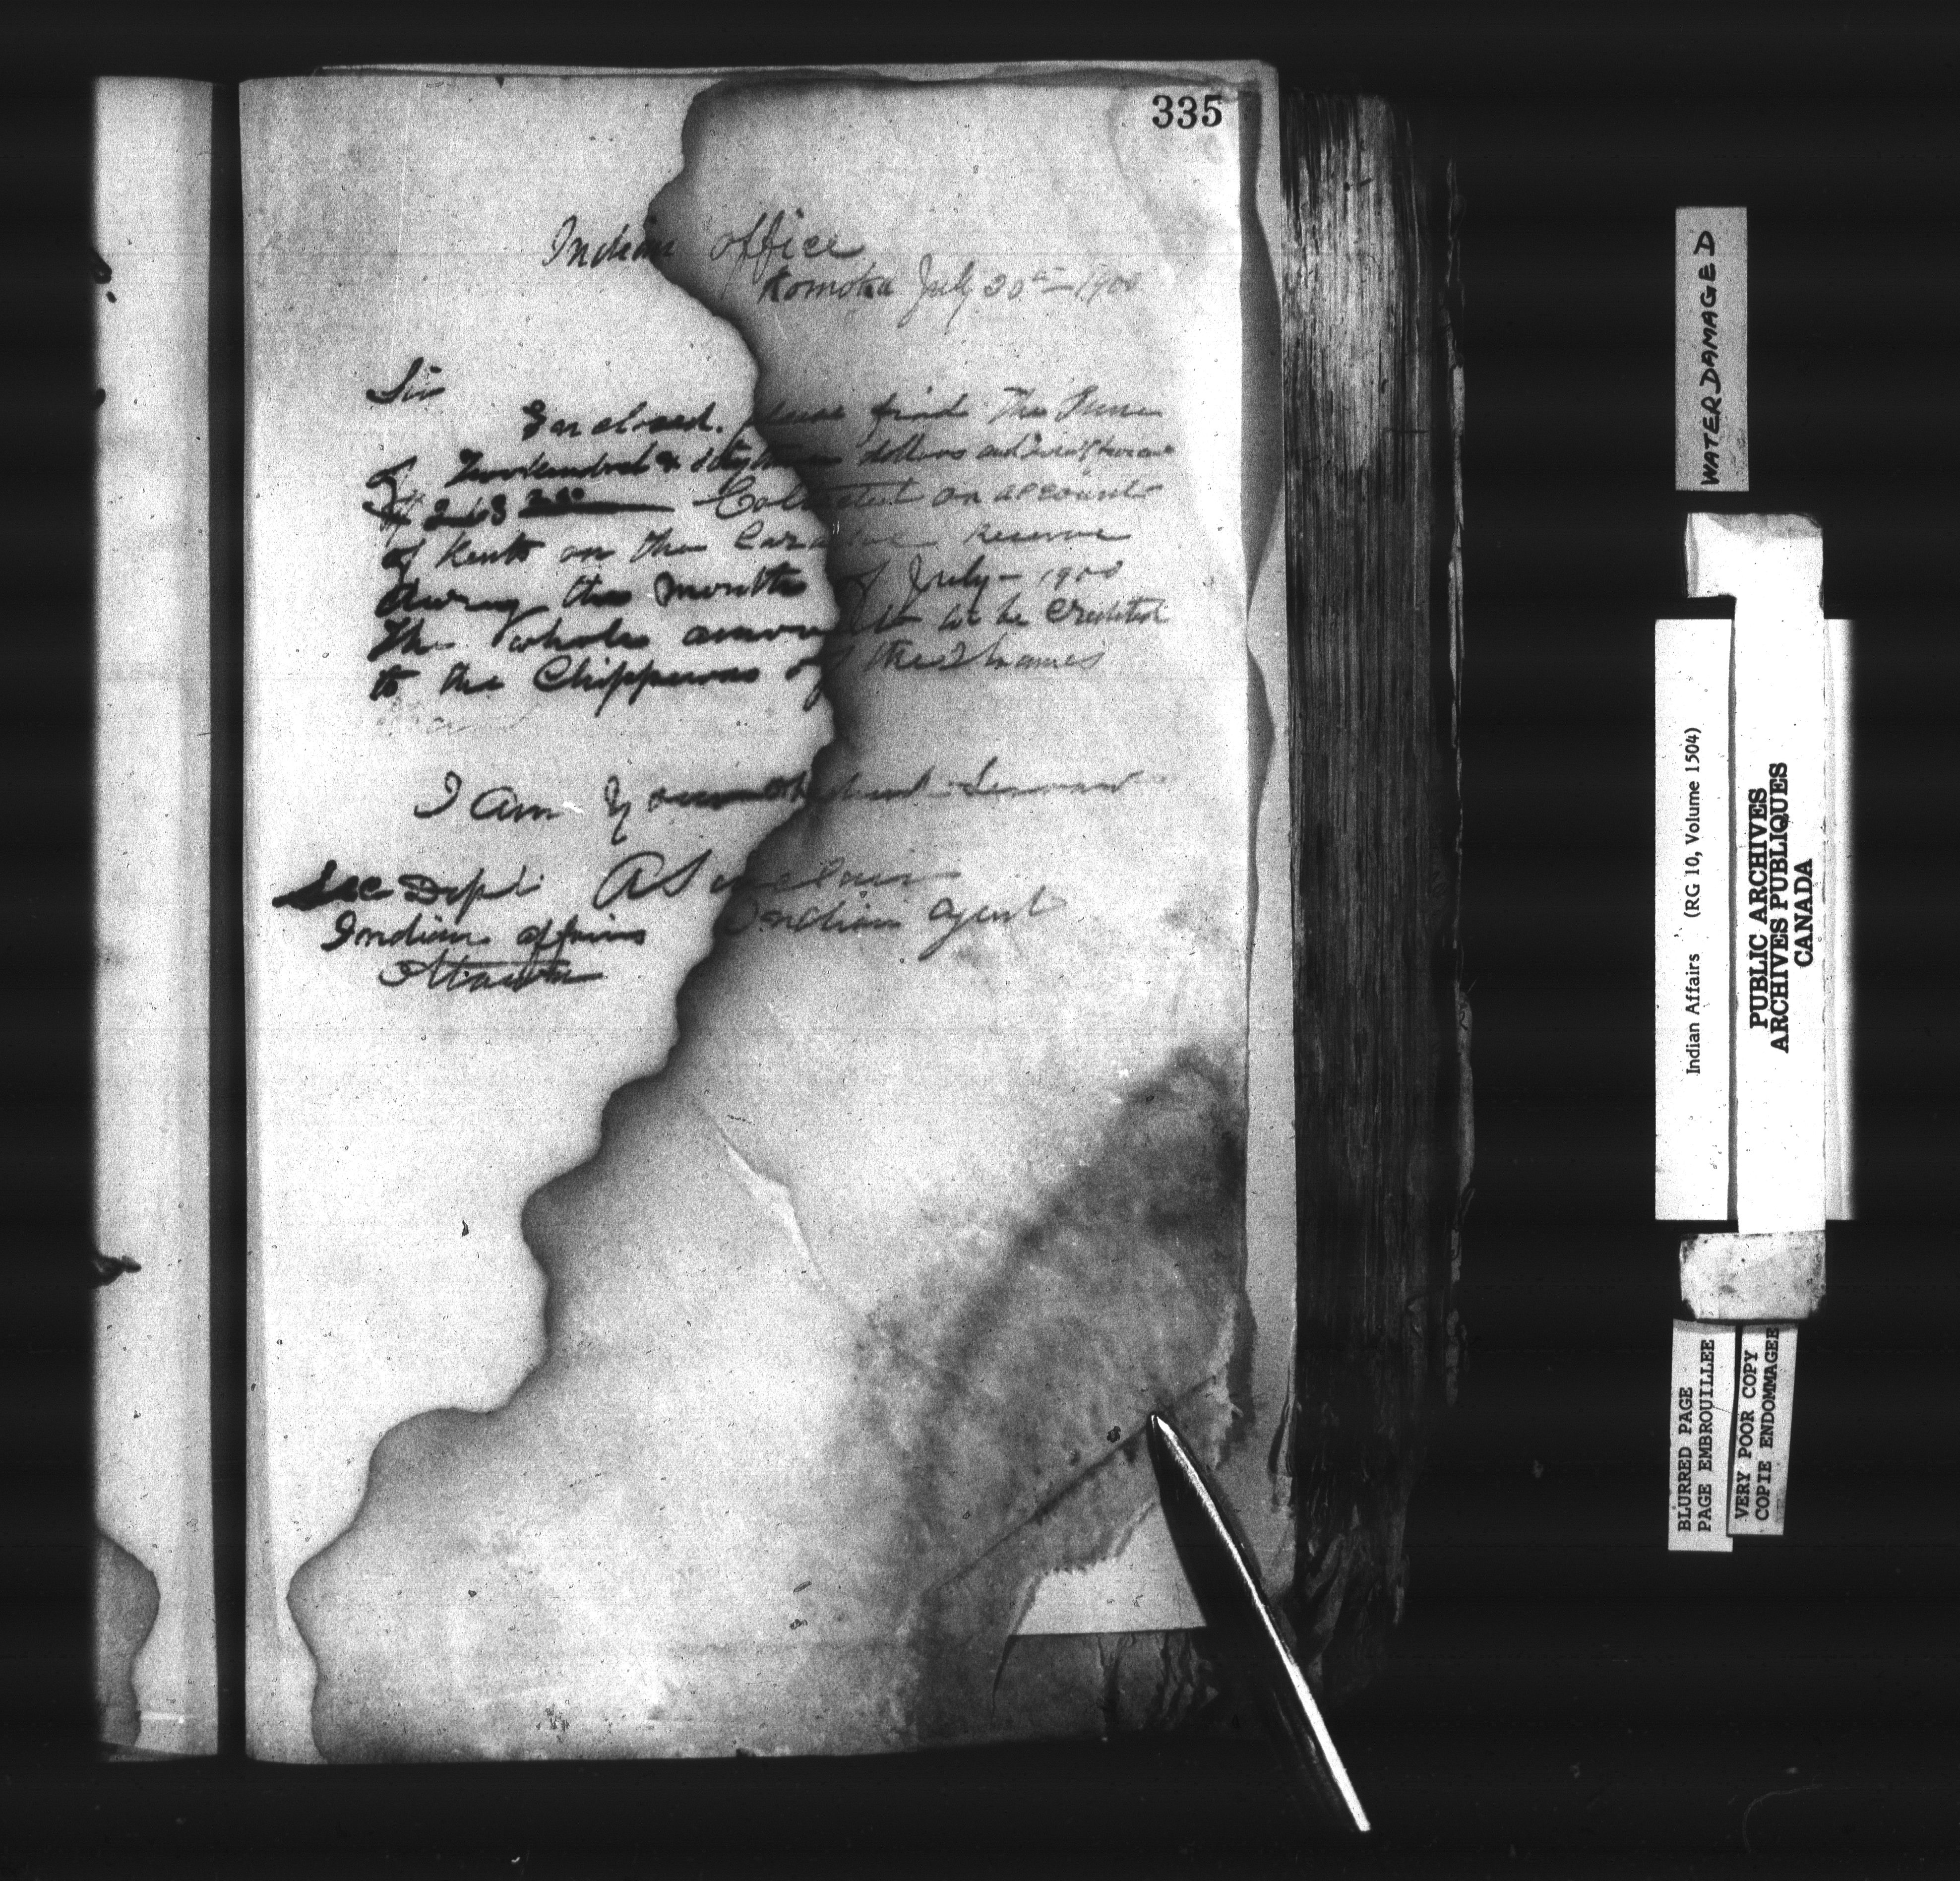 335
Indian office
Komoka July 30th - 1900
Sir
Enclosed. please find The Sum
of Two hundred & dollars and
$ 268 Collected on account
of Rents on the Caradoc Reserve
during the month of July - 1900
The whole amount to be Credited
to the Chippewas of the Thames
I am Your obedient Servant
Sec Dept A Sinclair
Indian affairs Indian agent
Ottawa
WATER DAMAGED
Indian Affairs (RG 10, Volume 1504)
PUBLIC ARCHIVES
ARCHIVES PUBLIQUES
CANADA
BLURRED PAGE
PAGE EMBROUILLEE
VERY POOR COPY
COPIE ENDOMMAGEE